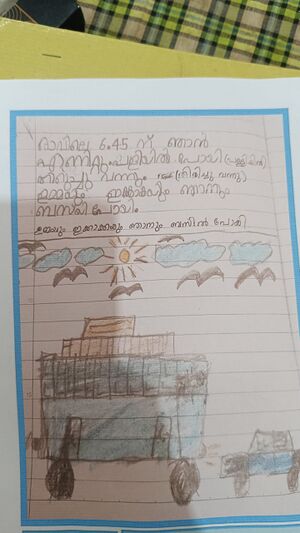 രാവിലെ 6.45 ന് ഞാൻ
എണീറ്റു പള്ളിയിൽ പോയി
തിരിച്ചു വന്നും (തിരിച്ചു വന്നു)
ഉമ്മയും ഇക്കാക്കയും ഞാനും
ബസ്സിൽ പോയി
ഉമ്മയും ഇക്കാക്കയും ഞാനും ബസിൽ പോയി